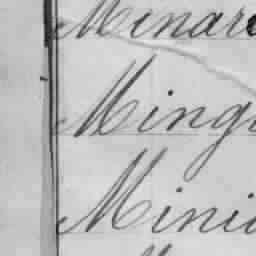 Minar
Ming
Mini